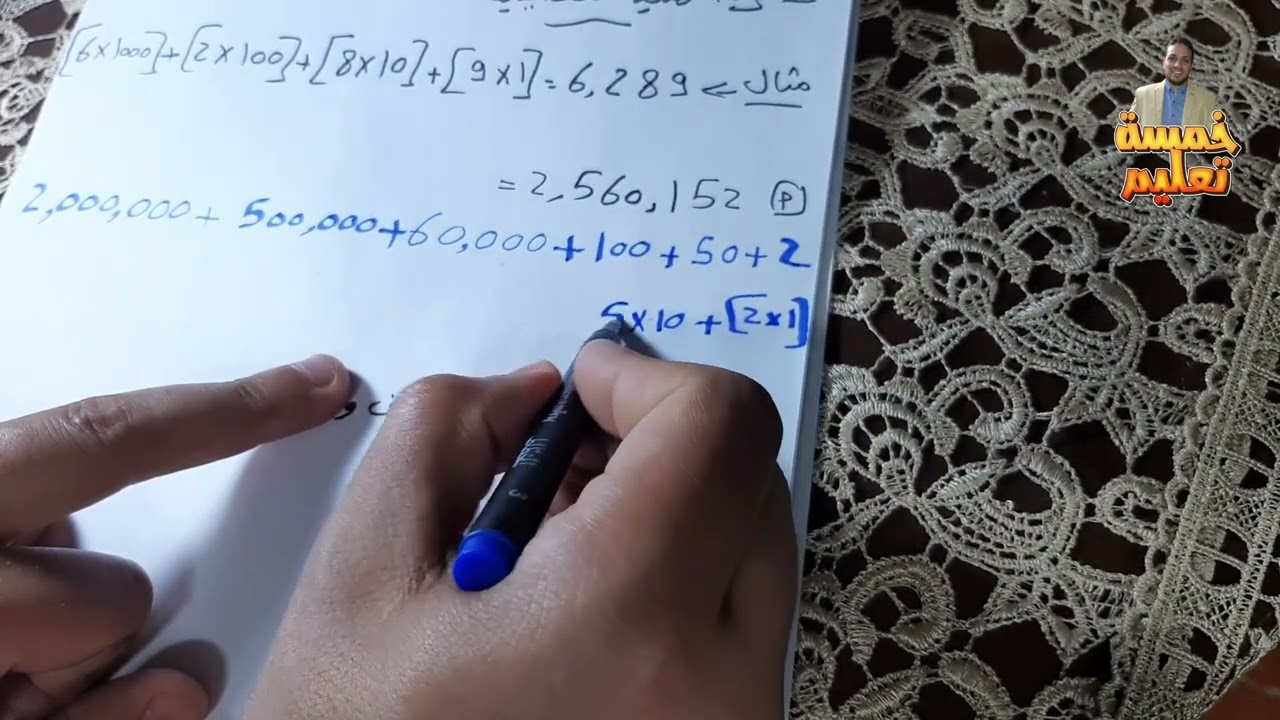 [6×1000]+[2×100]+[8×10]+[9×1]=6,289 ← مثال
= 2,560,152 (P)
2,000,000+ 500,000+60,000+100+50+2
5×10 +[2×1]
خمسة
تعليم